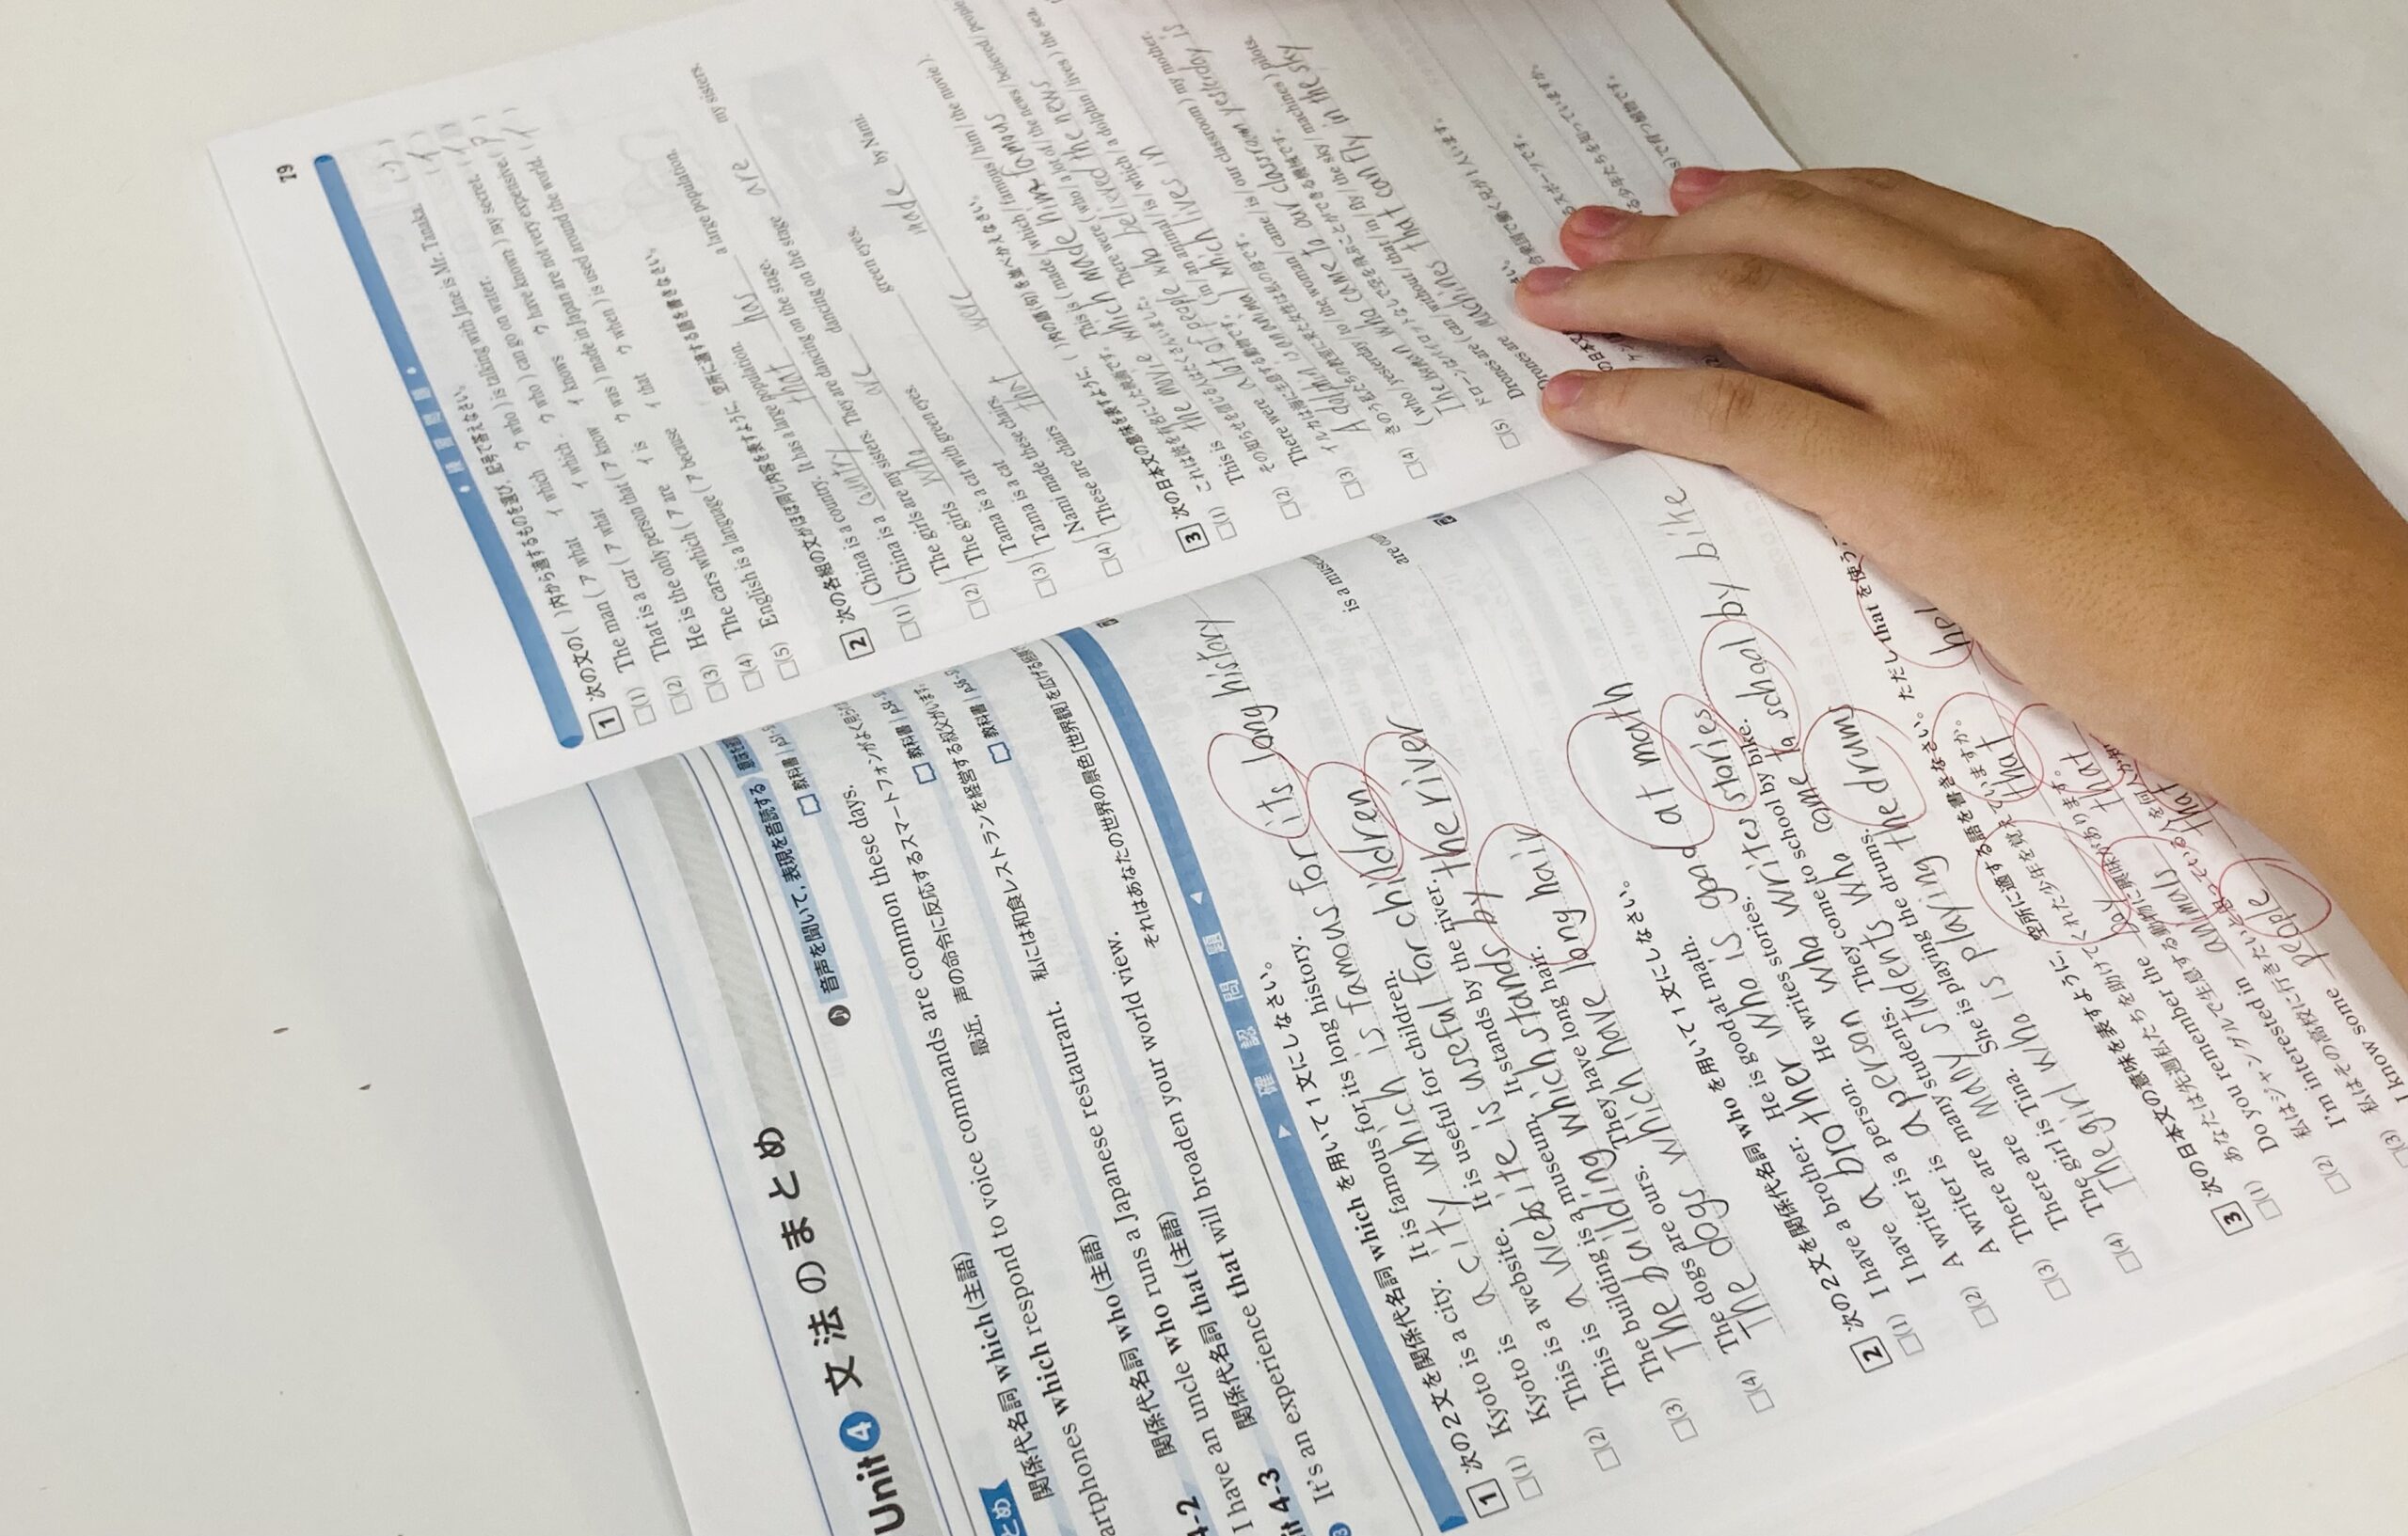 Unit 4 文法のまとめ
音声を聞いて、表現を音読する
教科書
とめ
関係代名詞 which(主語)
artphones which respond to voice commands are common these days.
最近，声の命令に反応するスマートフォンがよく見ら
4-2 関係代名詞 who(主語)
教科書
I have an uncle who runs a Japanese restaurant.
私には和食レストランを経営する叔父がいます。
it 4-3 関係代名詞 that(主語)
教科書
It's an experience that will broaden your world view.
それはあなたの世界の景色[世界観]を広げる経験
確認問題
1 次の2文を関係代名詞 which を用いて1文にしなさい。
(1) Kyoto is a city. It is famous for its long history.
Kyoto is a city which is famous for its long history
(2) This is a website. It is useful for children.
This is a website is useful for children
(3) The building is a museum. It stands by the river.
The building which stands by the river is a muse
(4) The dogs are ours. They have long hair.
The dogs which have long hair are ou
2 次の2文を関係代名詞 who を用いて1文にしなさい。
(1) I have a brother. He is good at math.
I have a brother who is good at math
(2) A writer is a person. He writes stories.
A writer is a person who writes stories
(3) There are many students. They come to school by bike.
There are many students who come to school by bike
(4) The girl is Tina. She is playing the drums.
The girl who is playing the drums
3 次の日本文の意味を表すように，空所に適する語を書きなさい。ただし that を使うこ
(1) あなたは先週私たちを助けてくれた少年を覚えていますか。
Do you remember the boy that hel
(2) 私はジャングルで生息する動物に興味があります。
I'm interested in animals that
(3) 私はその高校に行きたいと思っている人を何人か知
I know some people that
79
練習問題
1 次の文の( )内から適するものを選び，記号で答えなさい。
(1) The man (ア what イ which ウ who) is talking with Jane is Mr. Tanaka. (ウ)
(2) That is a car (ア what イ which ウ who) can go on water. (イ)
(3) He is the only person that (ア know イ knows ウ have known) my secret. (イ)
(4) The cars which (ア are イ is ウ was) made in Japan are not very expensive. (ア)
(5) English is a language (ア because イ that ウ when) is used around the world. (イ)
2 次の各組の文がほぼ同じ内容を表すように，空所に適する語を書きなさい。
(1) China is a country. It has a large population.
China is a country that has a large population.
(2) The girls are my sisters. They are dancing on the stage.
The girls who are dancing on the stage are my sisters.
(3) Tama is a cat with green eyes.
Tama is a cat green eyes.
(4) Nami made these chairs.
These are chairs that were made by Nami.
3 次の日本文の意味を表すように，( )内の語(句)を並べかえなさい。
(1) これは彼を有名にした映画です。 This is (made / which / famous / him / the movie).
This is the movie which made him famous
(2) その知らせを信じる人はたくさんいました。 There were (who / a lot of / the news / believed / people
There were a lot of people who believed the news
(3) イルカは海に生息する動物です。 (in / an animal / is / which / a dolphin / lives) the sea.
A dolphin is an animal which lives in
(4) きのう私たちの教室に来た女性は私の母です。
(who / yesterday / to / the woman / came / is / our classroom) my mother.
The woman who came to our classroom yesterday is
(5) ドローンはパイロットなしで空を飛ぶことができる機械です。
Drones are (can / without / that / in / fly / the sky / machines) pilots.
Drones are machines that can fly in the sky